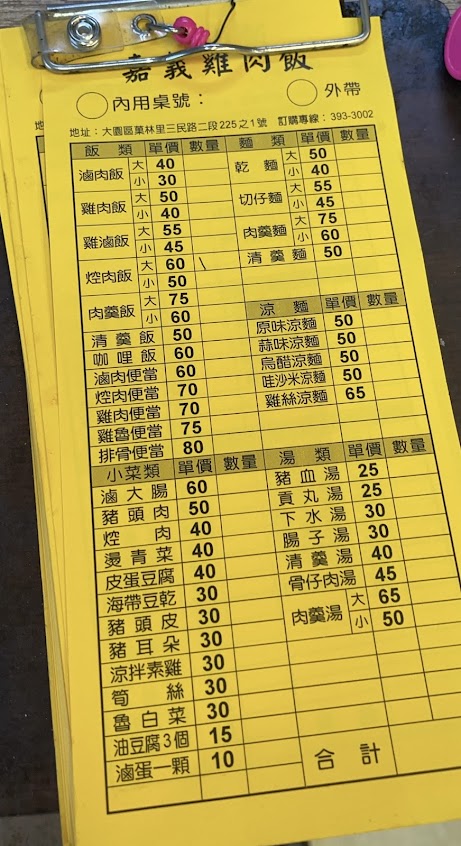 嘉義雞肉飯
內用桌號： 外帶
地址：大園區菓林里三民路二段225之1號 訂購專線：393-3002
飯類 單價 數量 麵類 單價 數量
滷肉飯 大 40 乾麵 大 50
小 30 小 40
雞肉飯 大 50 切仔麵 大 55
小 40 小 45
雞滷飯 大 55 肉羹麵 大 75
小 45 小 60
焢肉飯 大 60 \ 清羹麵 50
小 50
肉羹飯 大 75 涼麵 單價 數量
小 60 原味涼麵 50
清羹飯 50 蒜味涼麵 50
咖哩飯 60 烏醋涼麵 50
滷肉便當 60 哇沙米涼麵 50
焢肉便當 70 雞絲涼麵 65
雞肉便當 70
雞魯便當 75
排骨便當 80
小菜類 單價 數量 湯類 單價 數量
滷大腸 60 豬血湯 25
豬頭肉 50 貢丸湯 25
焢肉 40 下水湯 30
燙青菜 40 腸子湯 30
皮蛋豆腐 40 清羹湯 40
海帶豆乾 30 骨仔肉湯 45
豬頭皮 30 肉羹湯 大 65
豬耳朵 30 小 50
涼拌素雞 30
筍絲 30
魯白菜 30
油豆腐3個 15
滷蛋一顆 10 合計